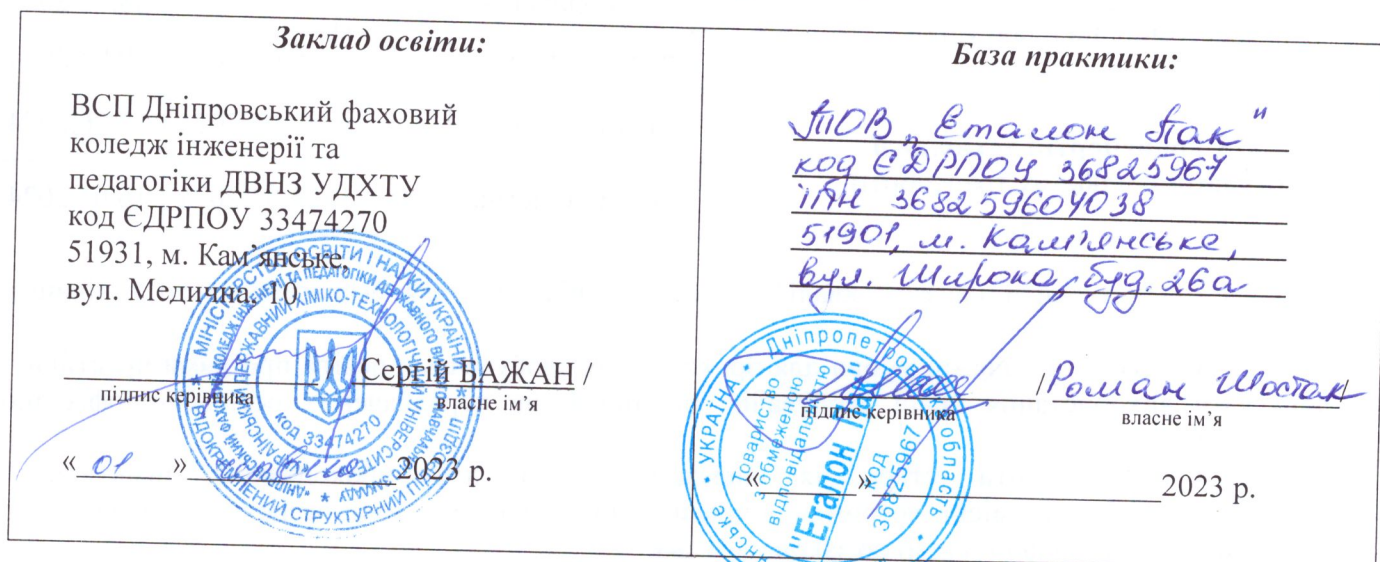 Заклад освіти:
ВСП Дніпровський фаховий
коледж інженерії та
педагогіки ДВНЗ УДХТУ
код ЄДРПОУ 33474270
51931, м. Кам'янське,
вул. Медична, 10
/ Сергій БАЖАН /
підпис керівника
власне ім'я
« 01 » 2023 р.
МІНІСТЕРСТВО ОСВІТИ І НАУКИ УКРАЇНИ
ВІДОКРЕМЛЕНИЙ СТРУКТУРНИЙ ПІДРОЗДІЛ
код 33474270
База практики:
ТОВ „Еталон Пак"
код ЄДРПОУ 36825967
ІПН 368259604038
51901, м. Кам'янське,
вул. Широка, буд. 26а
/Роман Шостак/
підпис керівника
власне ім'я
« » 2023 р.
УКРАЇНА • Дніпропетровська область
Товариство
з обмеженою
відповідальністю
"Еталон Пак"
код
36825967